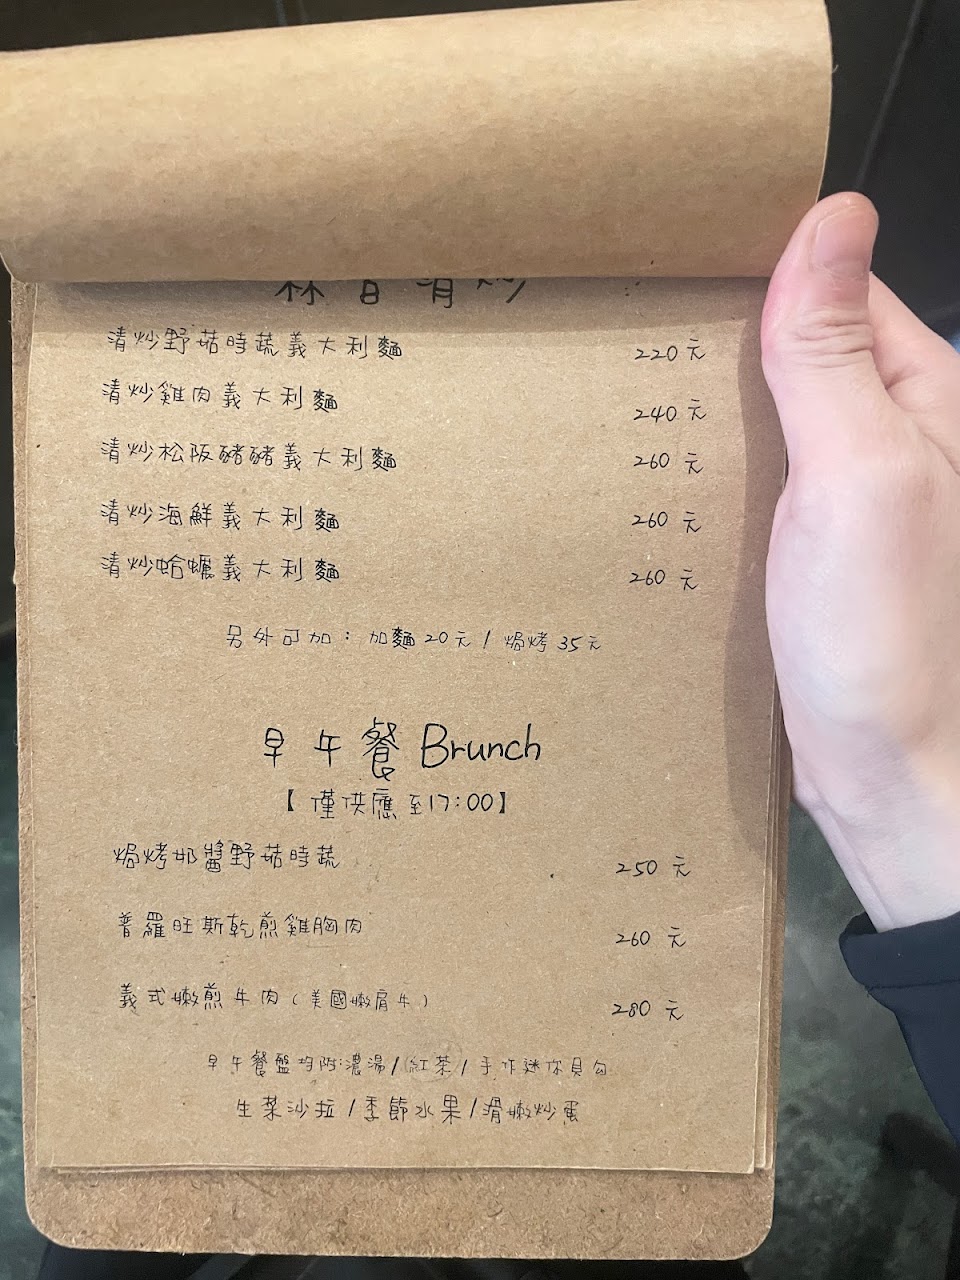 清炒野菇時蔬義大利麵 220元
清炒雞肉義大利麵 240元
清炒松阪豬豬義大利麵 260元
清炒海鮮義大利麵 260元
清炒蛤蠣義大利麵 260元
另外可加：加麵20元 / 焗烤35元
早午餐 Brunch
【僅供應至17:00】
焗烤奶醬野菇時蔬 250元
普羅旺斯乾煎雞胸肉 260元
義式嫩煎牛肉（美國嫩肩牛） 280元
早午餐盤均附：濃湯/紅茶/手作迷你貝勾
生菜沙拉/季節水果/滑嫩炒蛋